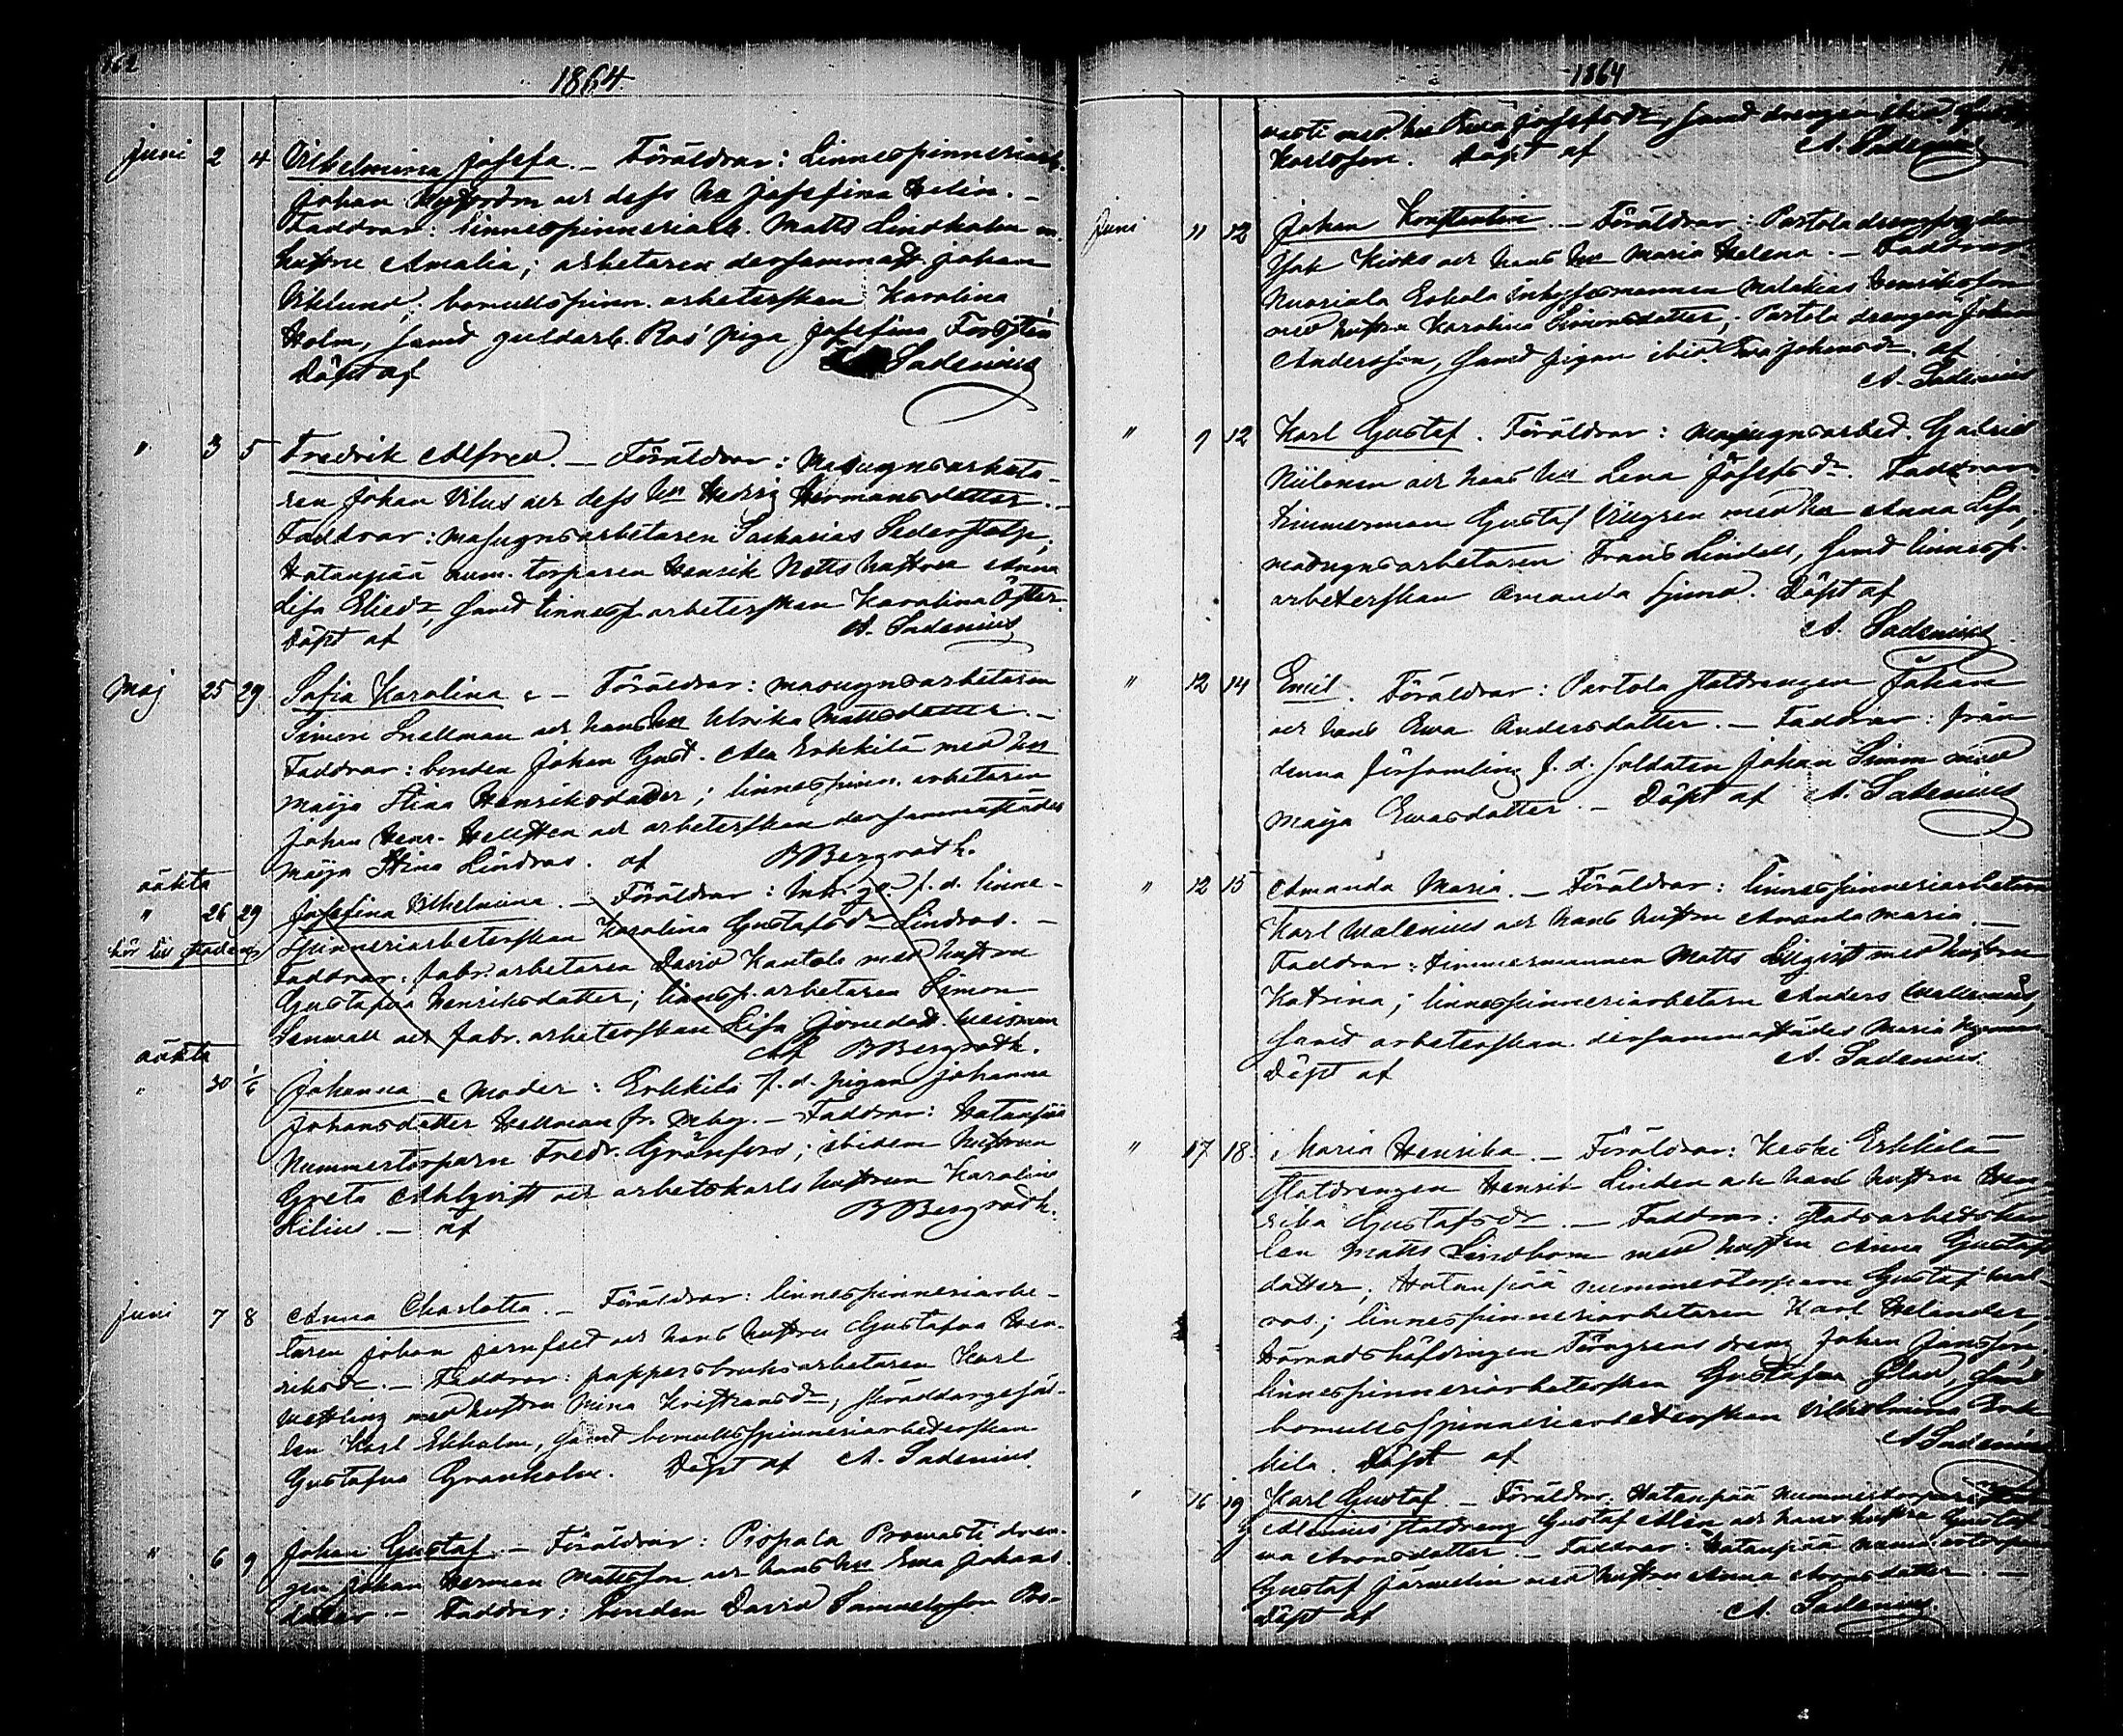 162
1864
Juni 2 4 Vilhelmina Josefa. – Föräldrar: Linnespinneriarb.
Johan och dess hu Josefina Helin. –
Faddrar: linnespinneriarb. Matts Lindholm m.
hustru Amalia; arbetaren dersammast. Johan
Viklund; bomullsspinn. arbeterskan Karolina
Holm, samt guldarb. Ros' piga Josefina Forsten
Döpt af Sadenius
" 3 5 Fredrik Alfred. – Föräldrar: Masugnsarbeta-
ren Johan Vilus och dess hu Hedvig Hermansdatter. –
Faddrar: masugnsarbetaren Sakarias Sederstolp;
Hatanpää num. torparen Henrik Natts hustru Anna
Lisa Eliedr, samt linnesp. arbeterskan Karolina Öster.
Döpt af A. Sadenius
Maj 25 29 Sofia Karolina. – Föräldrar: masugnsarbetaren
Simon Snellman och hans hu Ulrika Mattsdatter. –
Faddrar: bonden Johan Gust. Ala Erkkilä med hu
Maija Stina Henriksdatter; linnespinn. arbetaren
Johan Henr. Hellsten och arbeterskan dersammastädes
Maija Stina Lindroos. af B Bergroth.
oäkta
" 26 29 Josefina Vilhelmina. – Föräldrar: Inh. f.d. linne-
hör till staden spinneriarbeterskan Karolina Gustafsdr Lindroos. –
Faddrar: fabr. arbetaren David Kantola med hustru
Gustafva Henriksdatter; linnesp. arbetaren Simon
Senwall och fabr. arbeterskan Lisa
Af B Bergroth.
oäkta
" 30 1/6 Johanna. Moder: Erkkilä f.d. pigan Johanna
Johansdatter Hellman fr. – Faddrar: Hatanpää
Nummertorparn Fredr. Grönfors; ibidem hustrun
Greta Ahlqvist och arbetskarls hustrun Karolina
Lilius. – af B Bergroth.
Juni 7 8 Anna Charlotta. – Föräldrar: linnespinneriarbe-
taren Johan Jernfelt och hans hustru Gustafva Hen-
riksdr. – Faddrar: pappersbruksarbetaren Karl
Westling med hustru Mina Kristiansdr, skräddargesäl-
len Karl Ekholm, samt bomullsspinneriarbeterskan
Gustafva Granholm. Döpt af A. Sadenius
" 6 9 Johan Gustaf. – Föräldrar: Pispala Prowasti dren-
gen Johan Herman Mattsson och hans hu Ewa Johans
datter. – Faddrar: bonden David Samuelsson Pro-
1864
wasti med hu Ewa Josefsdr, samt drengen ibid.
Karlsson. Döpt af A. Sadenius
Juni 11 12 Johan Konstantin. – Föräldrar: Partola
Isak Kirks och hans hu Maria Helena. – Faddrar:
Nuoriala Eskola inhysesmannen Malakias Henriksson
med hustru Karolina Simonsdatter; Partola drengen Johan
Andersson, samt pigan ibid. Ewa Johansdr. af
A. Sadenius
" 9 12 Karl Gustaf. Föräldrar: Masugnsarbet. Gabriel
Niilonen och hans hu Lena Josefsdr. Faddrar:
timmerman Gustaf Villgren med hu Anna Lisa;
masugnsarbetaren Frans Lindell, samt linnesp.
arbeterskan Amanda Döpt af
A. Sadenius
" 12 14 Emil. Föräldrar: Partola statdrengen Johan
och hans Ewa Andersdatter. – Faddrar: från
denna församling f.d. soldaten Johan Simm med
Maija Ewasdatter. – Döpt af A. Sadenius
" 12 15 Amanda Maria. – Föräldrar: linnespinneriarbetaren
Karl Walenius och hans hustru Amanda Maria. –
Faddrar: timmermannen Matts med hustru
Katrina; linnespinneriarbetarn Anders Wallenius,
samt arbeterskan dersammastädes Maria
Döpt af A. Sadenius
" 17 18 Maria Henrika. – Föräldrar: Keski Erkkilä
statdrengen Henrik Linden och hans hustru Hen-
rika Gustafsdr. – Faddrar: stadsarbetskar-
len Matts Lindbom med hustru Anna Gustafs
datter, Hatanpää nummertorparn Gustaf Wal-
ros; linnespinneriarbetaren Karl Helander,
Häradshöfdingen Törngrens dreng Johan Jansson,
linnespinneriarbeterskan Gustafva Glad, samt
bomullsspinneriarbeterskan Vilhelmina Erk-
kilä. Döpt af A Sadenius
" 16 19 Karl Gustaf. – Föräldrar: Hatanpää nummertorparn
Alenius' statdreng Gustaf Alin och hans hustru Gustaf-
va Aronsdatter. – Faddrar: Hatanpää nummertorparn
Gustaf Järvelin med hustru Anna Aronsdatter. –
Döpt af A. Sadenius.